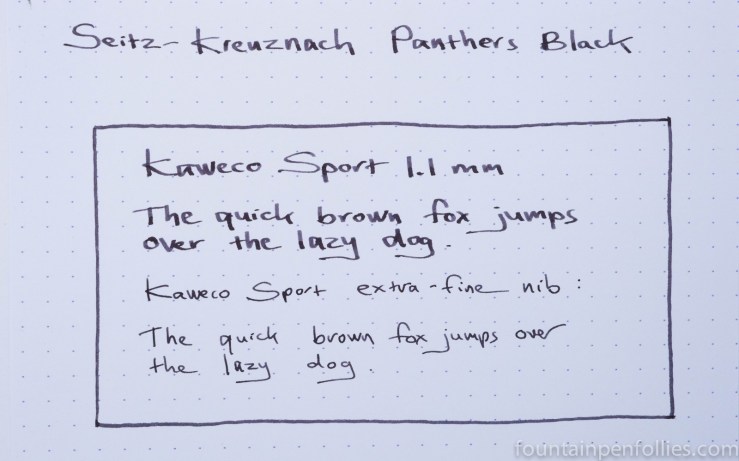 Seitz-Kreuznach Panthers Black
Kaweco Sport 1.1 mm
The quick brown fox jumps
over the lazy dog.
Kaweco Sport extra-fine nib:
The quick brown fox jumps over
the lazy dog.
fountainpenfollies.com